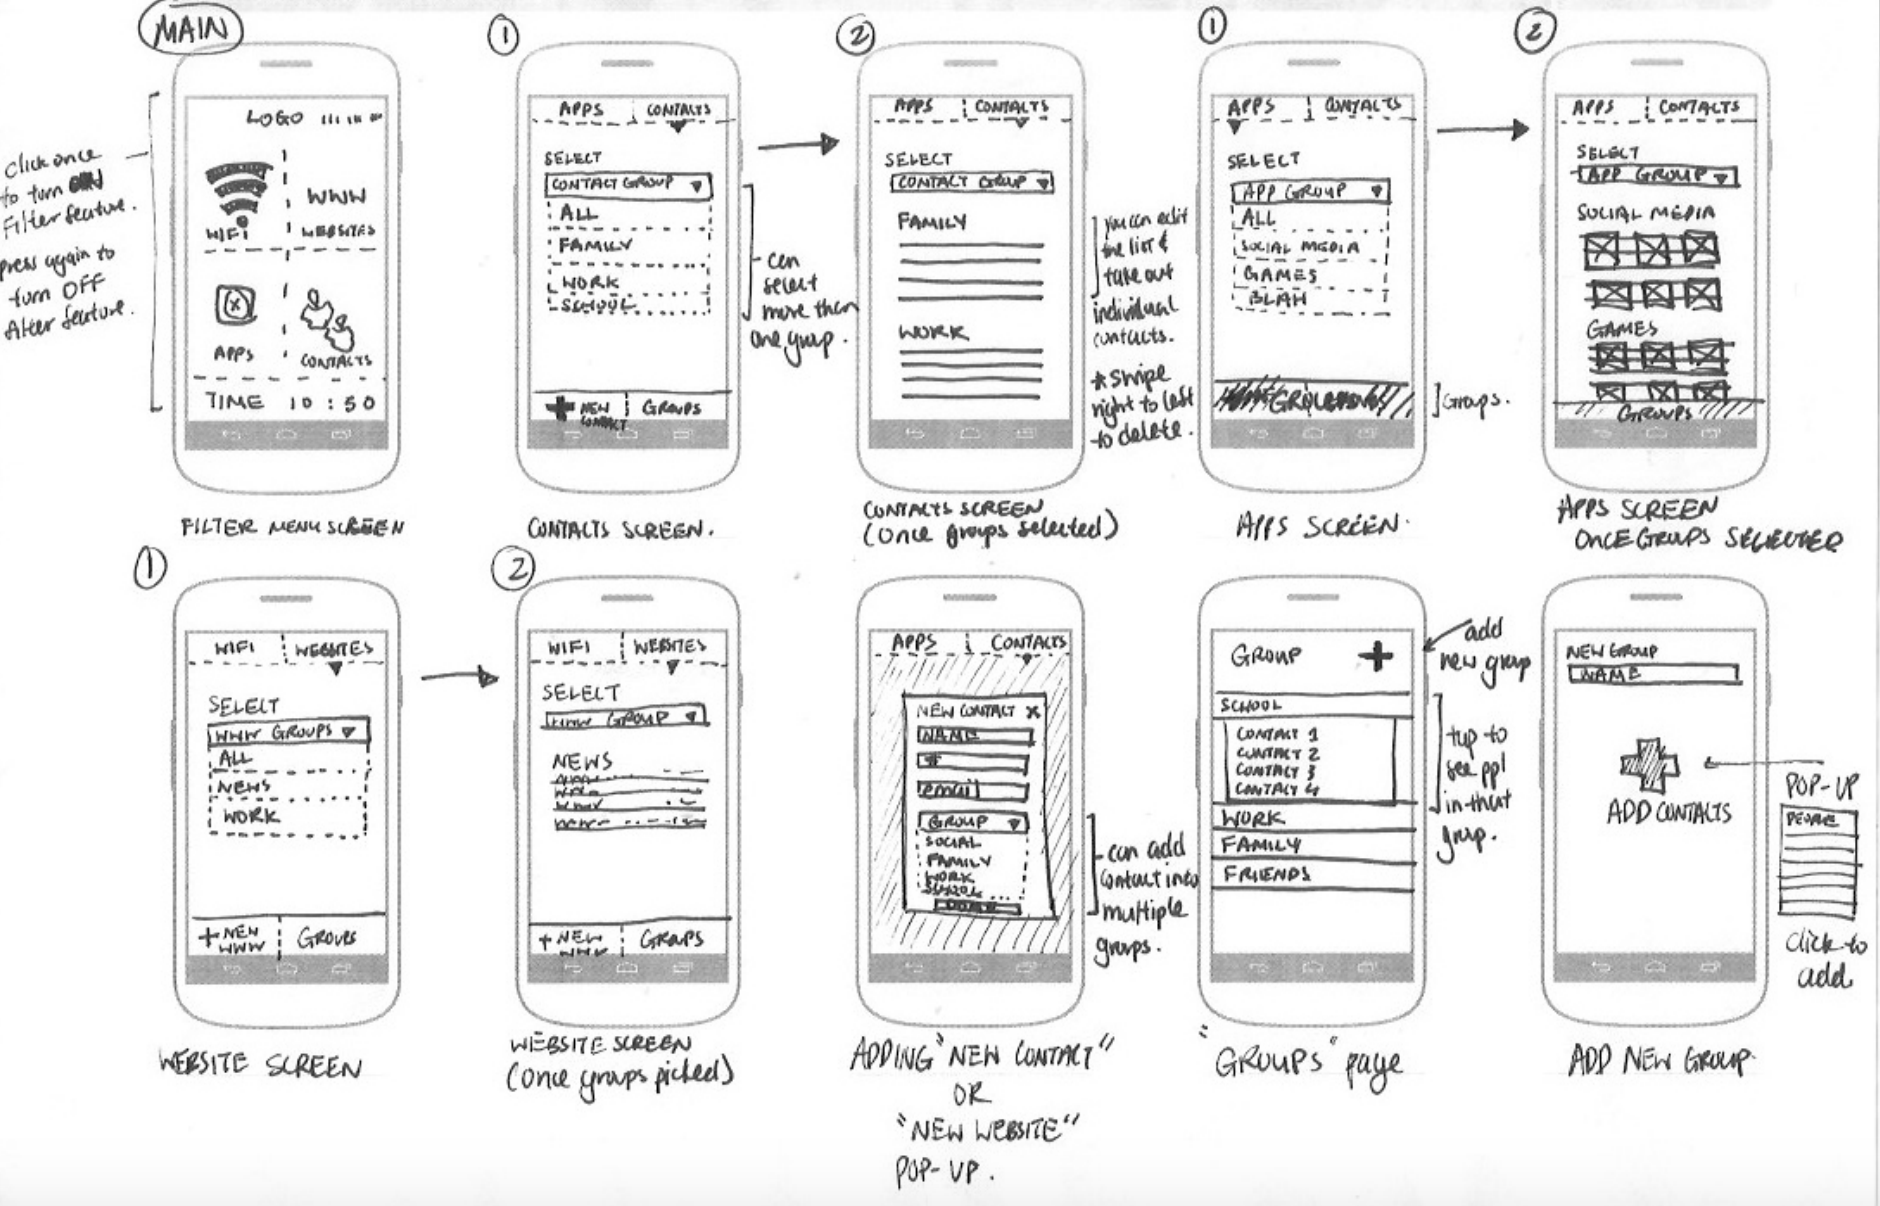 MAIN
click once
to turn ON
Filter feature.
press again to
turn OFF
filter feature.
LOGO
WIFI
WWW
WEBSITES
APPS
CONTACTS
TIME 10:50
FILTER MENU SCREEN
1
APPS CONTACTS
SELECT
CONTACT GROUP
ALL
FAMILY
WORK
SCHOOL
+ NEW
CONTACT
GROUPS
can
select
more than
one group.
CONTACTS SCREEN.
2
APPS CONTACTS
SELECT
CONTACT GROUP
FAMILY
WORK
you can edit
the list &
take out
individual
contacts.
* Swipe
right to left
to delete.
CONTACTS SCREEN
(once groups selected)
1
APPS CONTACTS
SELECT
APP GROUP
ALL
SOCIAL MEDIA
GAMES
BLAH
Groups.
APPS SCREEN.
2
APPS CONTACTS
SELECT
APP GROUP
SOCIAL MEDIA
GAMES
GROUPS
APPS SCREEN
ONCE GROUPS SELECTED
1
WIFI WEBSITES
SELECT
WWW GROUPS
ALL
NEWS
WORK
+ NEW
WWW
GROUPS
WEBSITE SCREEN
2
WIFI WEBSITES
SELECT
WWW GROUP
NEWS
+ NEW
WWW
GROUPS
WEBSITE SCREEN
(once groups picked)
APPS CONTACTS
NEW CONTACT X
NAME
#
email
GROUP
SOCIAL
FAMILY
WORK
SCHOOL
DONE
can add
contact into
multiple
groups.
ADDING "NEW CONTACT"
OR
"NEW WEBSITE"
POP-UP.
GROUP +
SCHOOL
CONTACT 1
CONTACT 2
CONTACT 3
CONTACT 4
WORK
FAMILY
FRIENDS
add
new group
tap to
see ppl
in that
group.
"GROUPS" page
NEW GROUP
NAME
ADD CONTACTS
POP-UP
PEOPLE
click to
add
ADD NEW GROUP.